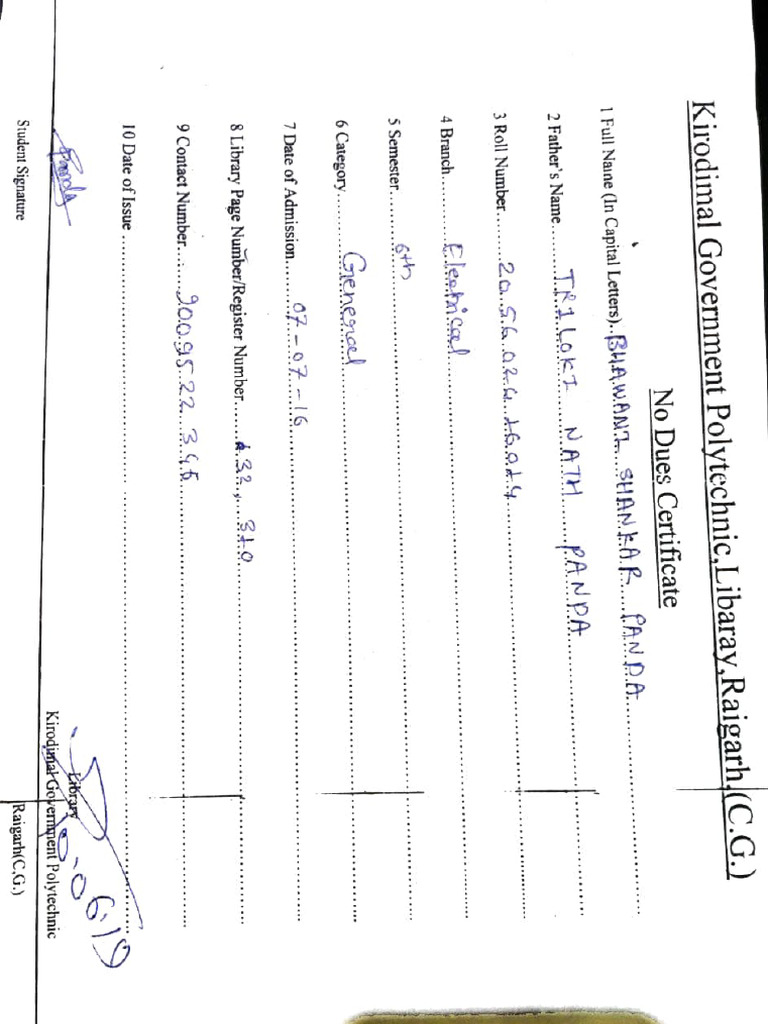 Kirodimal Government Polytechnic,Libaray,Raigarh,(C.G.)
No Dues Certificate
1 Full Name (In Capital Letters)..BHAWANI SHANKAR PANDA
2 Father's Name......TRILOKI NATH PANDA
3 Roll Number........
4 Branch..........Electrical
5 Semester........6th
6 Category........General
7 Date of Admission........07-07-16
8 Library Page Number/Register Number........132, 310
9 Contact Number........9009522345
10 Date of Issue
Panda
Student Signature
Library
Kirodimal Government Polytechnic
Raigarh(C.G.)